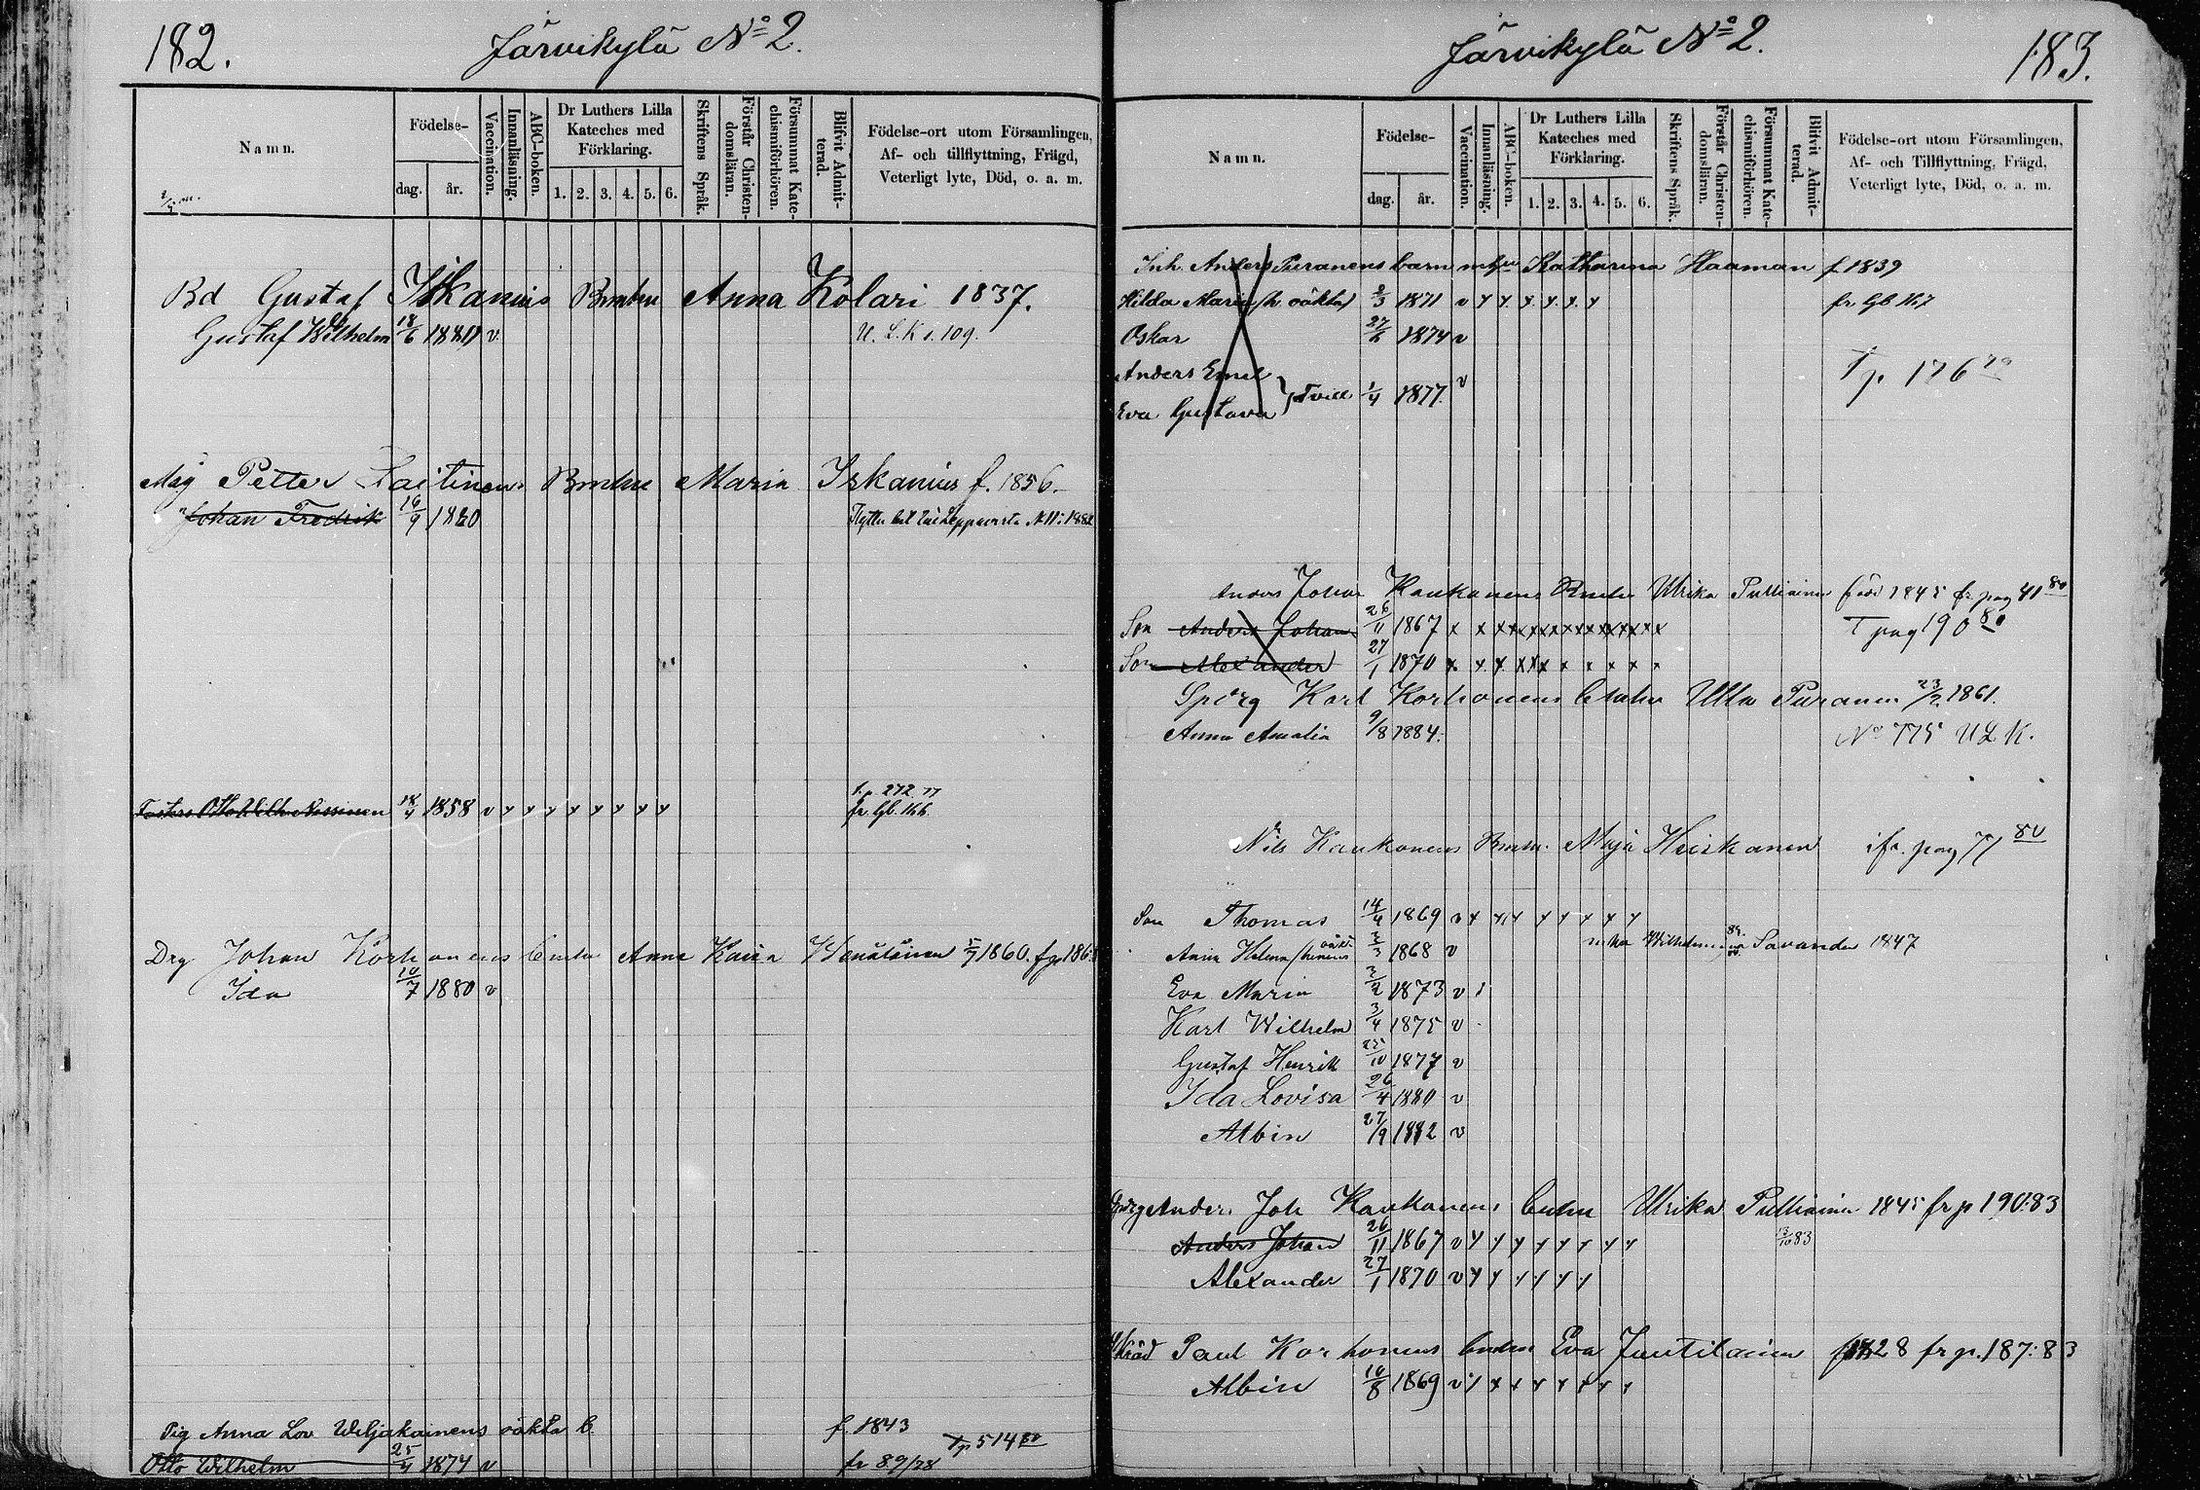 182.
Järvikylä No 2.
Namn.
Födelse-
dag. år.
Vaccination.
Innanläsning.
ABC-boken.
Dr Luthers Lilla Kateches med Förklaring.
1. 2. 3. 4. 5. 6.
Skriftens Språk.
Förstår Christen-domsläran.
Försummat Kate-chismiförhören.
Blifvit Admit-terad.
Födelse-ort utom Församlingen, Af- och tillflyttning, Frägd, Veterligt lyte, Död, o. a. m.
Bd Gustaf Iskanius Bmhu Anna Kolari 1837.
Gustaf Wilhelm 18/6 v U. L. K s. 109.
Petter Laitinens Bmhu Maria Iskanius f. 1856.
Johan Fredrik 16/9 1880
Otto Wilh Nissinen 18/4 1858 v y y y y y y y y fr. Gb. 166
Drg Johan Korhonens Anna Kaisa 1860.
Ida 10/7 1880 v
Pig Anna Lov Weljakainens oäkta b. f. 1843
Otto Wilhelm 25/4 1874 v fr 89/78 Tp 514 80
183.
Järvikylä No 2.
Namn.
Födelse-
dag. år.
Vaccination.
Innanläsning.
ABC-boken.
Dr Luthers Lilla Kateches med Förklaring.
1. 2. 3. 4. 5. 6.
Skriftens Språk.
Förstår Christen-domsläran.
Försummat Kate-chismiförhören.
Blifvit Admit-terad.
Födelse-ort utom Församlingen, Af- och Tillflyttning, Frägd, Veterligt lyte, Död, o. a. m.
Inh. Anders Puranens barn Katharina Haaman f. 1839
Hilda Maria (h. oäkta) 2/3 1871 v y y y. y. y. y fr Gb 167
Oskar 1874 v
Tp 176 79
Anders Emel
Eva Gustava } Tvill 1/4 1877 v
Anders Johan Kaukonens Ulrika Pulliainen född 1845 fr pag 41 80
Son Anders Johan 26/11 1867 x x x x x x x x x x x T pag 190 80
Son Alexander 27/1 1870 x x x x x x x x x x
Karl Korhonens Ulla Puranen 23/2 1861.
Anna Amalia 9/8 1884. No 775 U L K.
Nils Kaukonens Bmhu. Maja Heiskanen fr. pag 77 80
Son Thomas 14/4 1869 v y y y y y y y y
Anna Helena 3/3 1868 v Savander 1847
Eva Maria 3/2 1873 v
Karl Wilhelm 3/4 1875 v
Gustaf Henrik 25/10 1877 v
Ida Lovisa 26/4 1880 v
Albin 27/9 1882 v
Anders Joh Kaukonens Ulrika Pulliainen 1845 fr p 190:83
Anders Johan 26/11 1867 v y y y y y y y 83
Alexander 27/1 1870 v y y y y y y
Paul Korhonens Eva Juutilainen 1828 fr p. 187:83
Albin 10/8 1869 v y y y y y y y